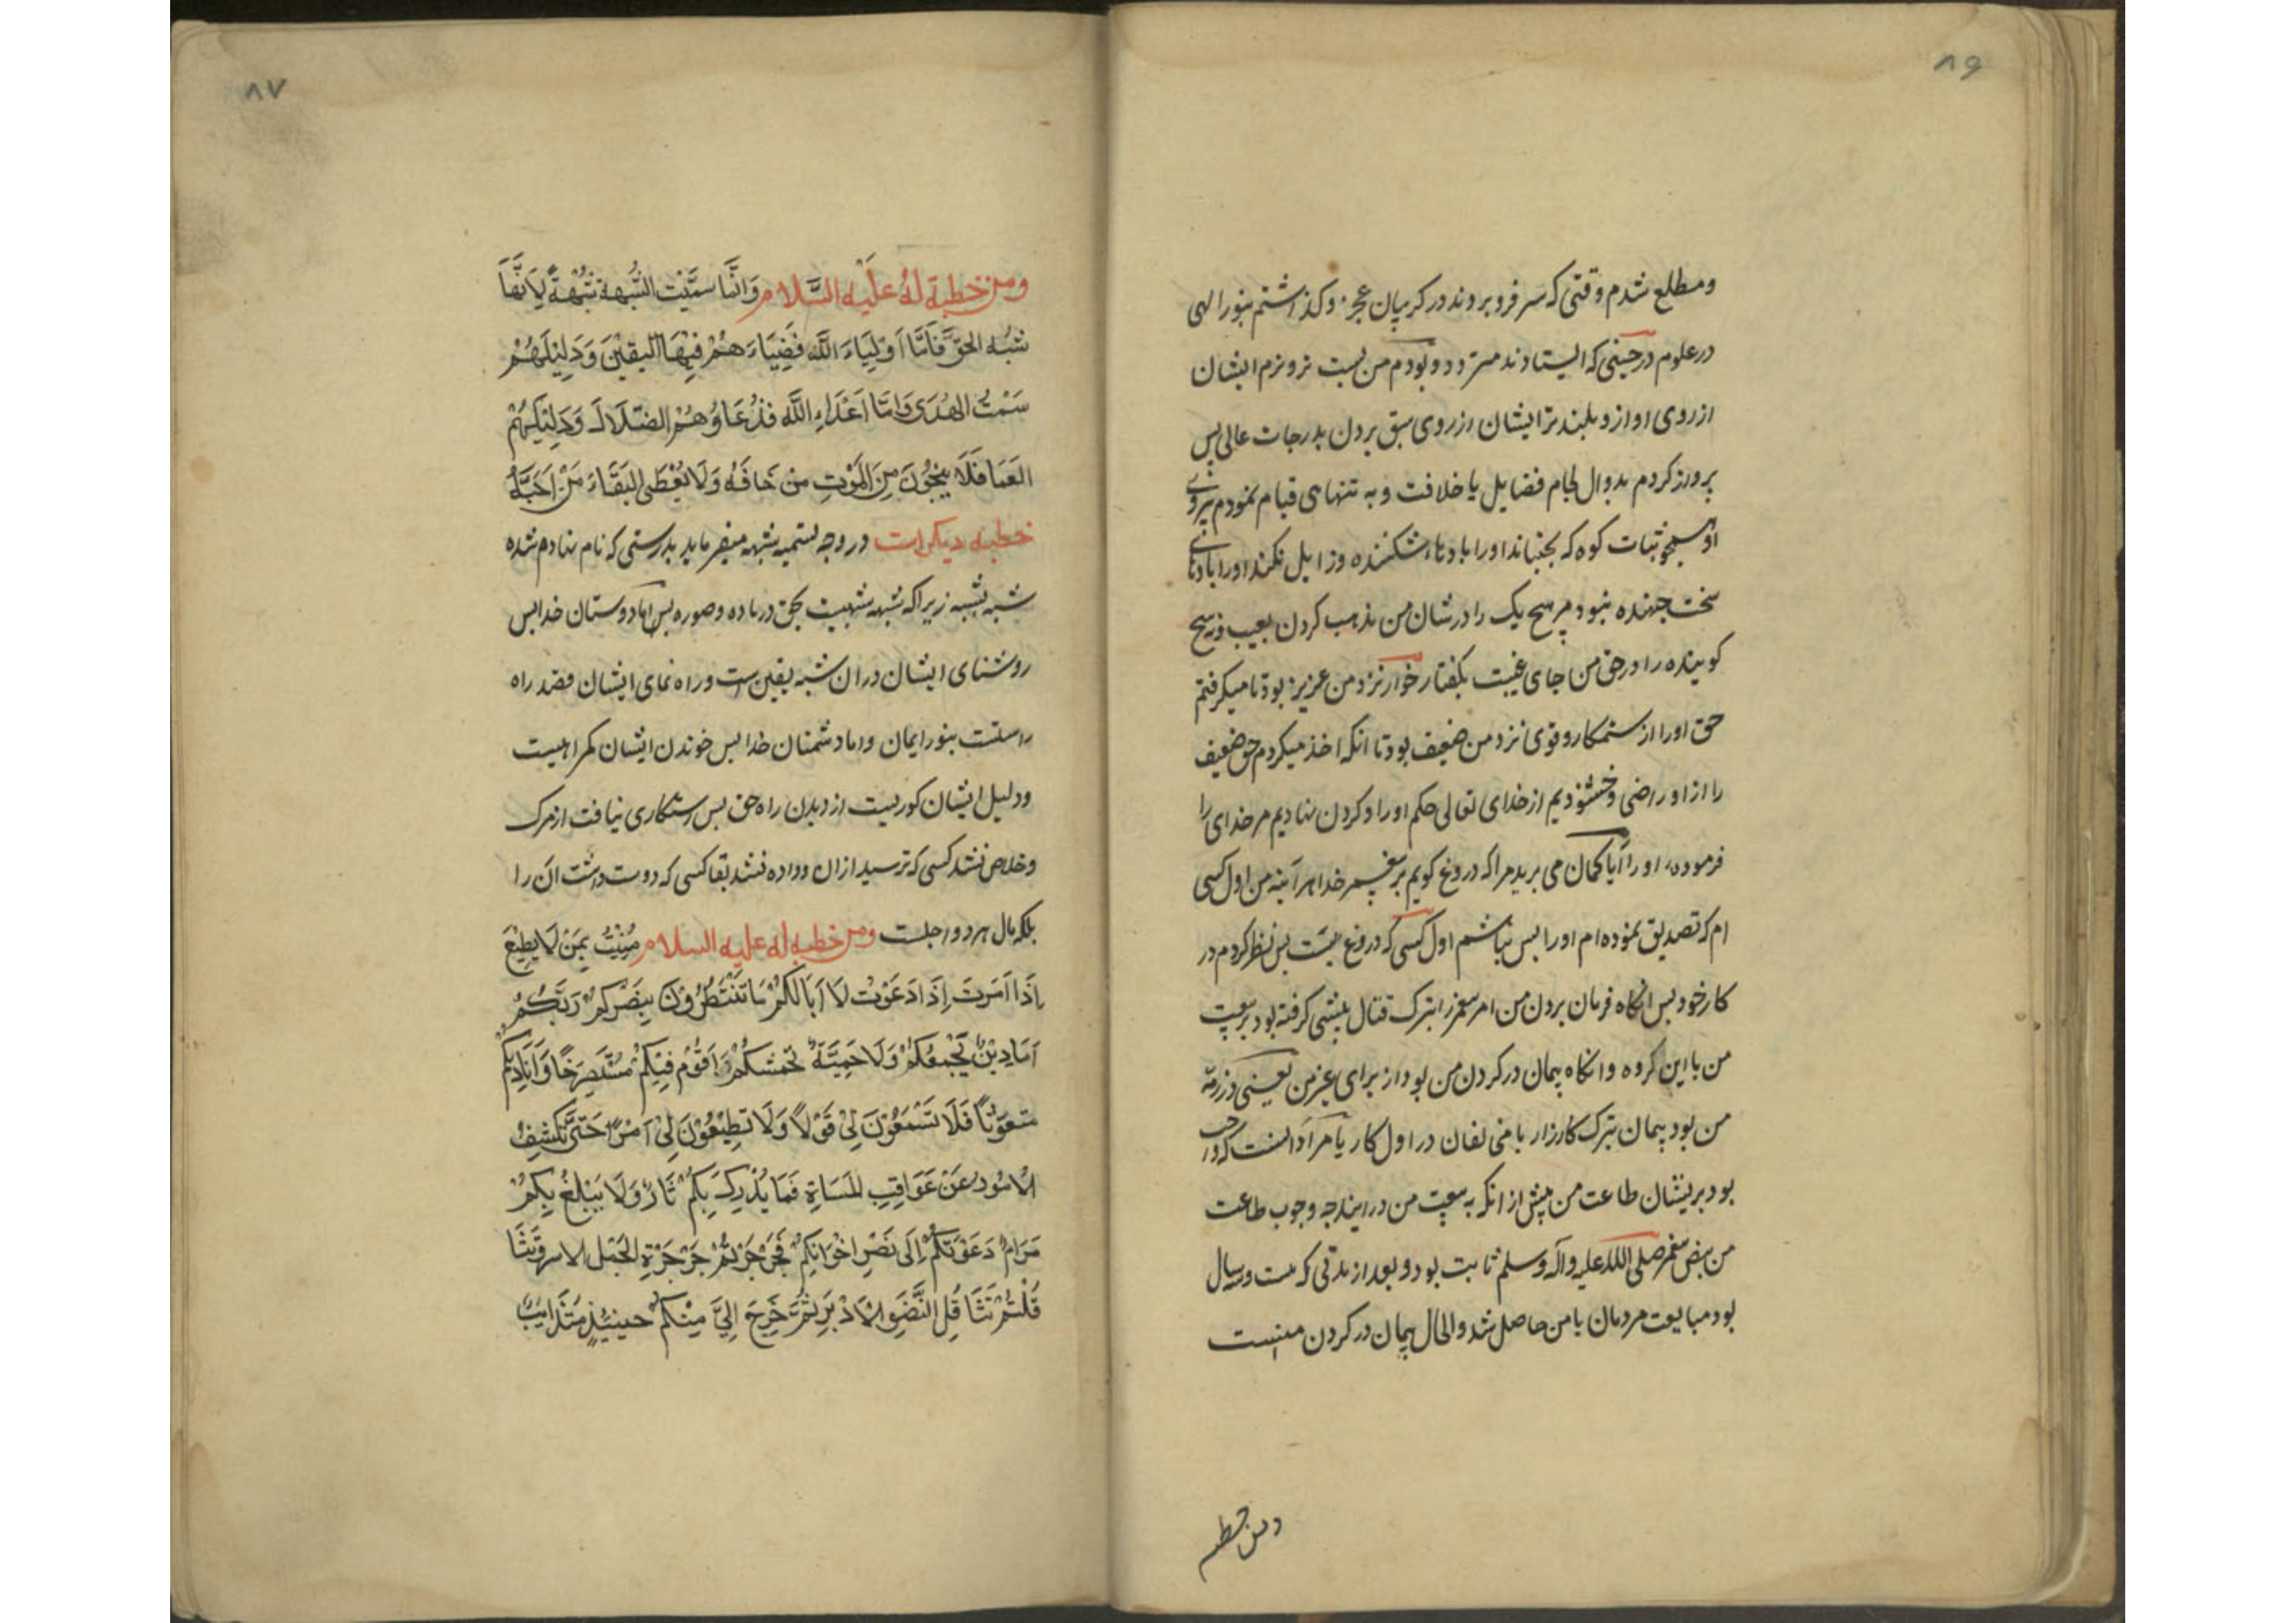 ۸۶
ومطلع شدم وقتی که سر فرو بروند در کریبان عجز و کذاشتم بنور الهی
در علوم در حینی که ایستادند متردد و بودم من پست تر و نرم ایشان
از روی اواز و بلند تر ایشان از روی سبق بردن بدرجات عالی پس
پرواز کردم بدوال لجام فضایل یا خلافت و به تنهای قیام نمودم به
او همچو ثبات کوه که بجنباند اورا بادهای شکننده و زایل نکند اورا بادهای
سخت جهنده نبود مر هیچ یک را در شان من مذهب کردن بعیب و نه هیچ
کوینده را در حق من جای غیبت بگفتار خوار نزد من عزیز بود تا میکرفتم
حق اورا از ستمکار و قوی نزد من ضعیف بود تا انکه اخذ میکردم حق ضعیف
را از او راضی و خشنودیم از خدای تعالی حکم اورا و کردن نهادیم مر خدای را
فرموده اورا آیا کمان می برید مرا که دروغ کویم بر پیغمبر خدا هر آینه من اول کسی
ام که تصدیق نموده ام اورا پس نباشم اول کسی که دروغ بست پس نظر کردم در
کار خود پس انکاه فرمان بردن من امر پیغمبر را بترک قتال پیشی کرفته بود بر بیعت
من با این کروه و انکاه پیمان در کردن من بود از برای غیر من یعنی در ذمه
من بود پیمان بترک کارزار با منافقان در اول کار یا مراد انست که واجب
بود بر ایشان طاعت من پیش از انکه به بیعت من در ایند چه وجوب طاعت
من بنص پیغمبر صلی الله علیه وآله وسلم ثابت بود و بعد از مدتی که بیست و سال
بود مبایعت مردمان با من حاصل شد والحال پیمان در کردن منست
ومن خطبه
۸۷
ومن خطبة له علیه السلام وَانَّما سمّیت الشُّبهة شُبهةً لِاَنَّها
تشبُه الحقَّ فَاَمَّا اَوْلِیَاءَ اللّه فَضِیَاءَهُمْ فِیْهَا الیَقیْنَ وَدَلِیْلَهُمْ
سَمْتُ الهُدَی وَامَّا اَعْدَاءِ اللّه فَدُعَاؤُهُمْ الضّلَالَ وَدَلِیْلَهُمْ
العَمَا فَلَا یَنْجُوْنَ مِنَ المَوْتِ مَنْ خَافَهُ وَلَا یُعْطَی البَقَاءَ مَنْ اَحَبَّهُ
خطبه دیکر است در وجه تسمیه شبهه میفرماید بدرستی که نام نهادم شده
شبه بشبه زیرا که شبهه شبهیت بحق در ماده و صوره پس اما دوستان خدا پس
روشنای ایشان در ان شبه یقین است و راه نمای ایشان قصد راه
راستست بنور ایمان واما دشمنان خدا پس خوندن ایشان کمراهیست
ودلیل ایشان کوریست از دیدن راه حق پس رستکاری نیافت از مرک
وخلاص نشد کسی که ترسید از ان وداده نشد بقا کسی که دوست داشت آن را
بلکه مال هر دو اجلست ومن خطبه له علیه السلام مُنِیْتُ بِمَنْ لَا یُطِیْعُ
اِذَا اَمَرتَ اِذَا دَعَوْتُ لَا اَبَا لَکُمْ مَا تَنْتَظِرُوْنَ بِنَصْرِکُمْ رَبَّکُمْ
اَمَا دِیْنٌ یَجْمَعُکُمْ وَلَا حَمِیَّةٌ تحمشکُمْ اَقُوْمُ فِیْکُمْ مُسْتَصْرِخًا وَاُنَادِیْکُمْ
متغوّثاً فَلَا تَسْمَعُوْنَ لِیْ قَوْلاً وَلَا تُطِیْعُوْنَ لِیْ اَمْراً حَتَّی تَکْشِفُ
الاُمُوْرُ عَنْ عَوَاقِبِ المَسَاةِ فَمَا یُدْرِکَ بِکُمْ ثَارٌ وَلَا یَبْلُغُ بِکُمْ
مَرَامٌ دَعَوْتکُمْ اِلَی نَصْرِ اِخْوَانِکُمْ فَجَرْجَرْتُمْ جَرْجَرَةِ الجَمَل الاسر وَتَثَا
قَلْتُمْ تَثَاقُلِ النَّضْوِ الْاَدْبَرِ ثُمَّ خَرَجَ اِلَیَّ مِنْکُمْ حینئذٍ مُتَذَایِبٌ